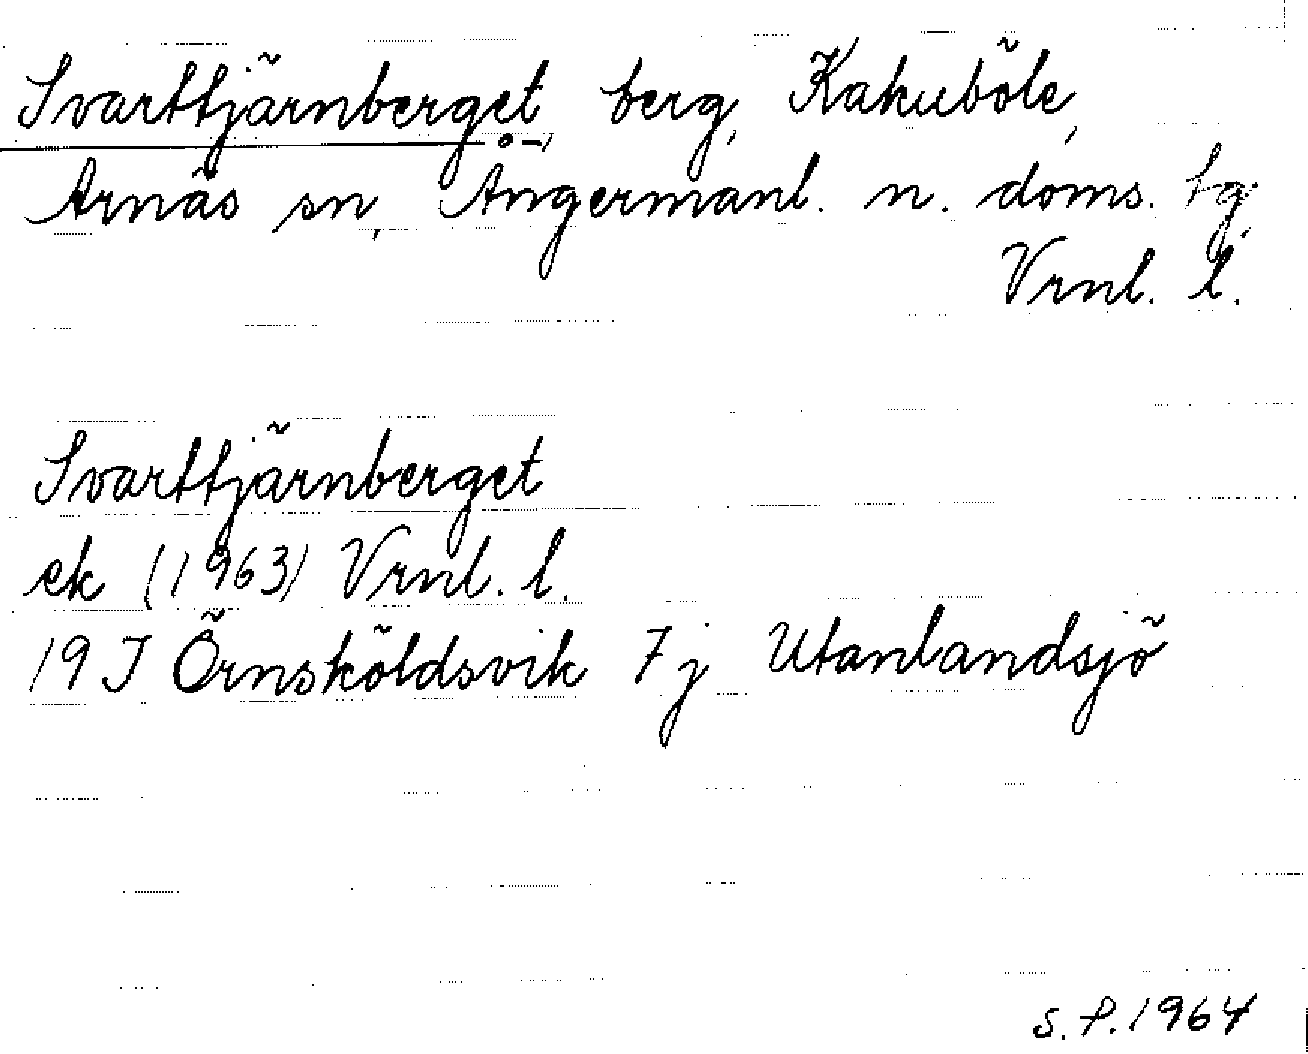 Svarttjärnberget, berg, Kakuböle,
Arnäs sn, Ångermanl. n. doms. tg,
Vrnl. l.
Svarttjärnberget
ek (1963) Vrnl. l.
19 J Örnsköldsvik 7 j Utanlandsjö
S. P. 1964